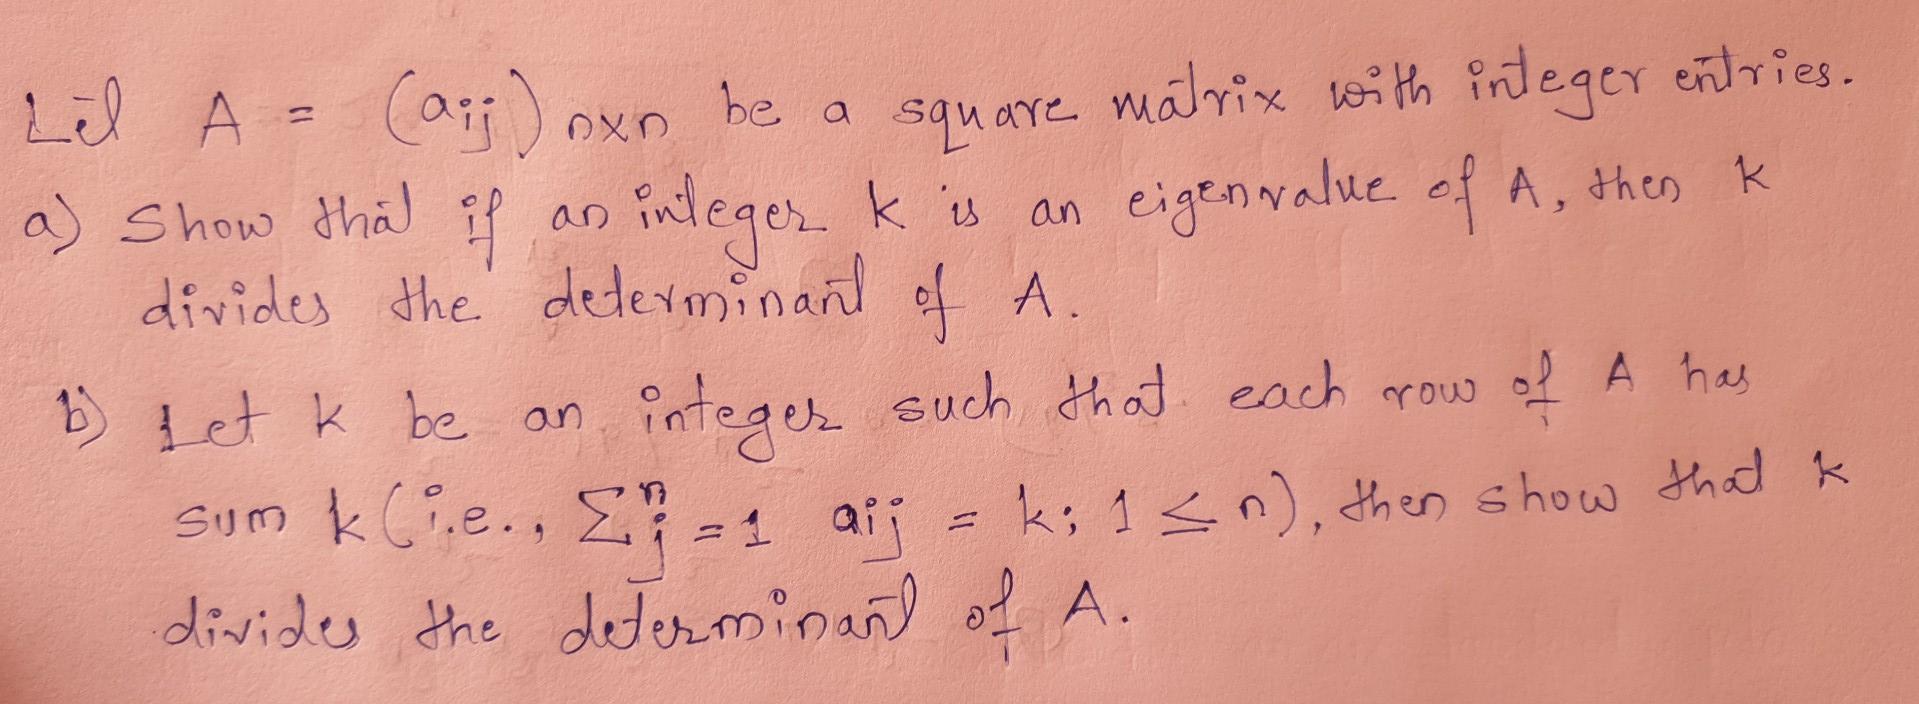 Let A = (aij) n×n be a square matrix with integer entries.
a) Show that if an integer k is an eigenvalue of A, then k
divides the determinant of A.
b) Let k be an integer such that each row of A has
sum k (i.e., Σⁿj=1 aij = k; 1 ≤ n), then show that k
divides the determinant of A.